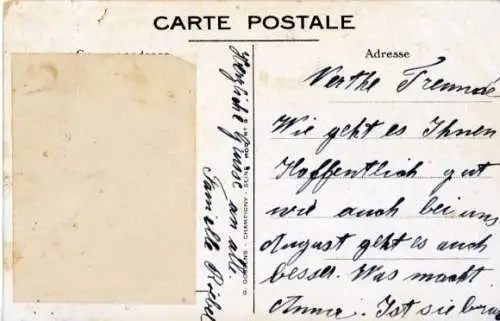 CARTE POSTALE
Correspondance
Adresse
Werthe Freunde
Wie geht es Ihnen
Hoffentlich gut
wie auch bei uns
August geht es auch
besser. Was macht
Anna. Ist sie
Herzliche Grüsse an alle.
Familie
CHAMPIGNY - SEINE